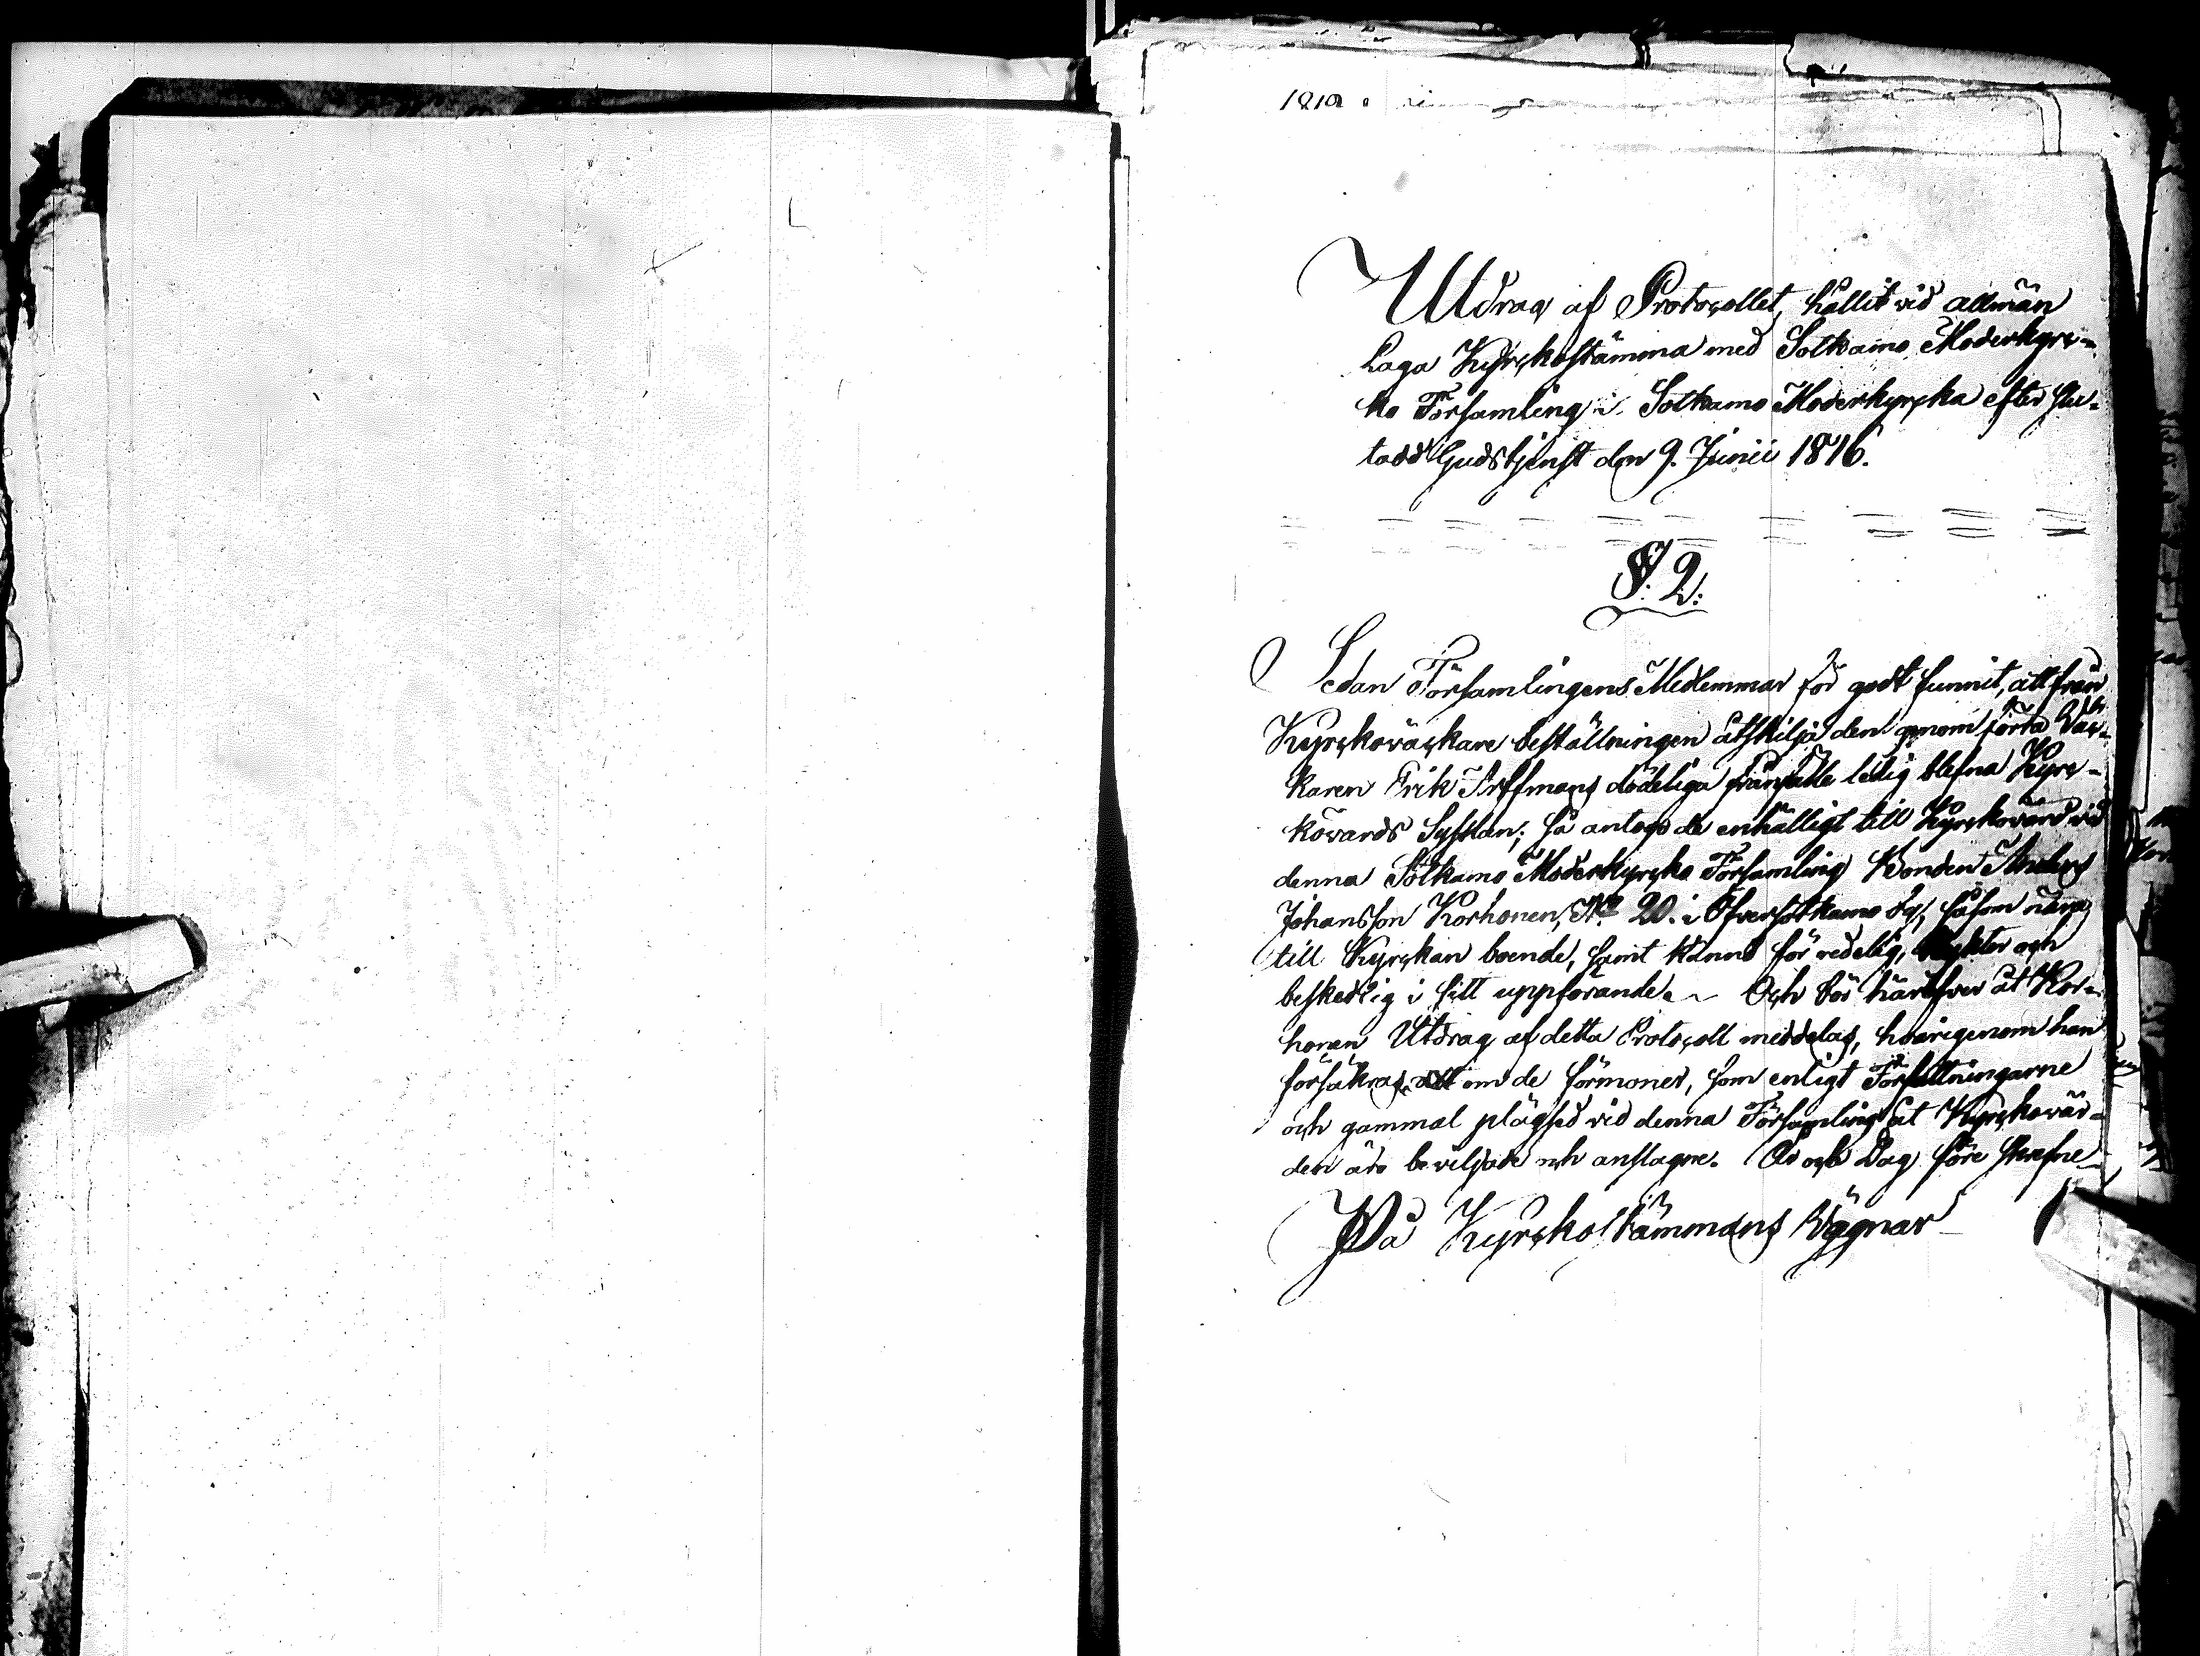 Utdrag af Protocollet, hållit vid allmän
Laga Kyrckostämma med Sotkamo Moderkyrc-
ko Församling i Sotkamo Moderkyrcka efter slu-
tadd Gudstjenst den 9. Junii 1816.
§. 2.
Sedan Församlingens Medlemmar för godt funnit, att från
Kyrckoväckare beställningen åtskilja den genom förra Väc-
karen Erik Arffmans dödeliga frånfälle ledig blefna Kyrc-
kovärds Sysslan; så antogo de enhälligt till Kyrckovärd vid
denna Sotkamo Moderkyrcko Församling Bonden Anders
Johansson Korhonen, No 20. i Öfversotkamo by, såsom nära
till Kyrckan boende, samt känd för redelig, nykter och
beskedlig i sitt uppförande. - Och bör häröfver åt Kor-
honen Utdrag af detta Protocoll meddelas, hvarigenom han
försäkras om de förmoner, som enligt Författningarne
och gammal plägsed vid denna Församling åt Kyrckovär-
den äro beviljade och anslagne. År och Dag före skrefne
På Kyrckostämmans Vägnar